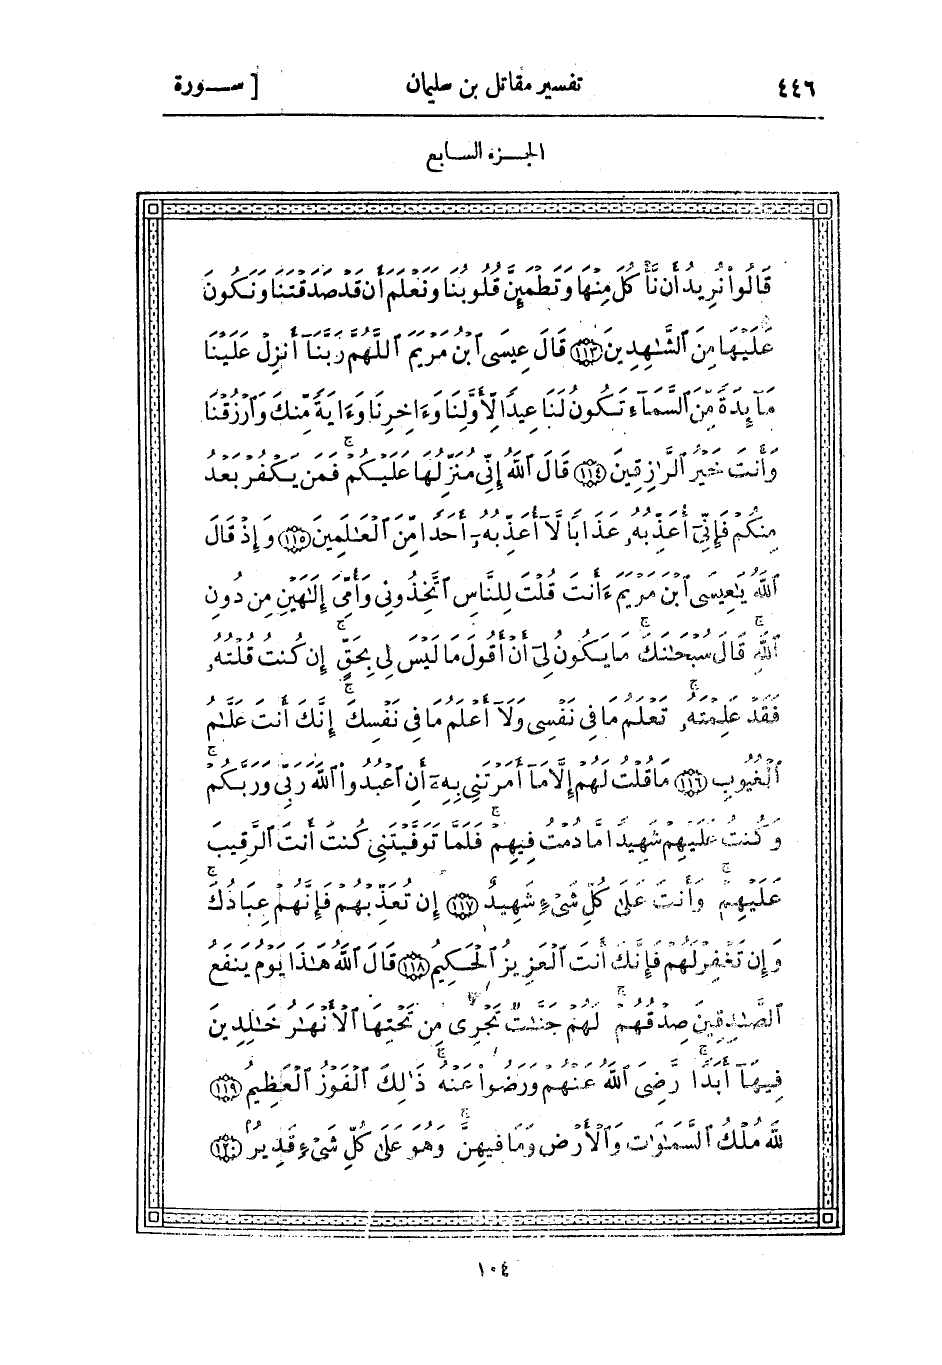 ٤٤٦
تفسير مقاتل بن سليمان
[ سـورة
الجـزء السابع
قَالُواْ نُرِيدُ أَن نَّأْكُلَ مِنْهَا وَتَطْمَئِنَّ قُلُوبُنَا وَنَعْلَمَ أَن قَدْ صَدَقْتَنَا وَنَكُونَ
عَلَيْهَا مِنَ ٱلشَّٰهِدِينَ ١١٣ قَالَ عِيسَى ٱبْنُ مَرْيَمَ ٱللَّهُمَّ رَبَّنَآ أَنزِلْ عَلَيْنَا
مَآئِدَةً مِّنَ ٱلسَّمَآءِ تَكُونُ لَنَا عِيدًا لِّأَوَّلِنَا وَءَاخِرِنَا وَءَايَةً مِّنكَ وَٱرْزُقْنَا
وَأَنتَ خَيْرُ ٱلرَّٰزِقِينَ ١١٤ قَالَ ٱللَّهُ إِنِّى مُنَزِّلُهَا عَلَيْكُمْ ۖ فَمَن يَكْفُرْ بَعْدُ
مِنكُمْ فَإِنِّىٓ أُعَذِّبُهُۥ عَذَابًا لَّآ أُعَذِّبُهُۥٓ أَحَدًا مِّنَ ٱلْعَٰلَمِينَ ١١٥ وَإِذْ قَالَ
ٱللَّهُ يَٰعِيسَى ٱبْنَ مَرْيَمَ ءَأَنتَ قُلْتَ لِلنَّاسِ ٱتَّخِذُونِى وَأُمِّىَ إِلَٰهَيْنِ مِن دُونِ
ٱللَّهِ ۚ قَالَ سُبْحَٰنَكَ ۚ مَا يَكُونُ لِىٓ أَنْ أَقُولَ مَا لَيْسَ لِى بِحَقٍّ ۚ إِن كُنتُ قُلْتُهُۥ
فَقَدْ عَلِمْتَهُۥ ۚ تَعْلَمُ مَا فِى نَفْسِى وَلَآ أَعْلَمُ مَا فِى نَفْسِكَ ۚ إِنَّكَ أَنتَ عَلَّٰمُ
ٱلْغُيُوبِ ١١٦ مَا قُلْتُ لَهُمْ إِلَّا مَآ أَمَرْتَنِى بِهِۦٓ أَنِ ٱعْبُدُواْ ٱللَّهَ رَبِّى وَرَبَّكُمْ ۚ
وَكُنتُ عَلَيْهِمْ شَهِيدًا مَّا دُمْتُ فِيهِمْ ۚ فَلَمَّا تَوَفَّيْتَنِى كُنتَ أَنتَ ٱلرَّقِيبَ
عَلَيْهِمْ ۚ وَأَنتَ عَلَىٰ كُلِّ شَىْءٍ شَهِيدٌ ١١٧ إِن تُعَذِّبْهُمْ فَإِنَّهُمْ عِبَادُكَ ۚ
وَإِن تَغْفِرْ لَهُمْ فَإِنَّكَ أَنتَ ٱلْعَزِيزُ ٱلْحَكِيمُ ١١٨ قَالَ ٱللَّهُ هَٰذَا يَوْمُ يَنفَعُ
ٱلصَّٰدِقِينَ صِدْقُهُمْ ۚ لَهُمْ جَنَّٰتٌ تَجْرِى مِن تَحْتِهَا ٱلْأَنْهَٰرُ خَٰلِدِينَ
فِيهَآ أَبَدًا ۚ رَّضِىَ ٱللَّهُ عَنْهُمْ وَرَضُواْ عَنْهُ ۚ ذَٰلِكَ ٱلْفَوْزُ ٱلْعَظِيمُ ١١٩
لِلَّهِ مُلْكُ ٱلسَّمَٰوَٰتِ وَٱلْأَرْضِ وَمَا فِيهِنَّ ۚ وَهُوَ عَلَىٰ كُلِّ شَىْءٍ قَدِيرٌ ١٢٠
١٠٤